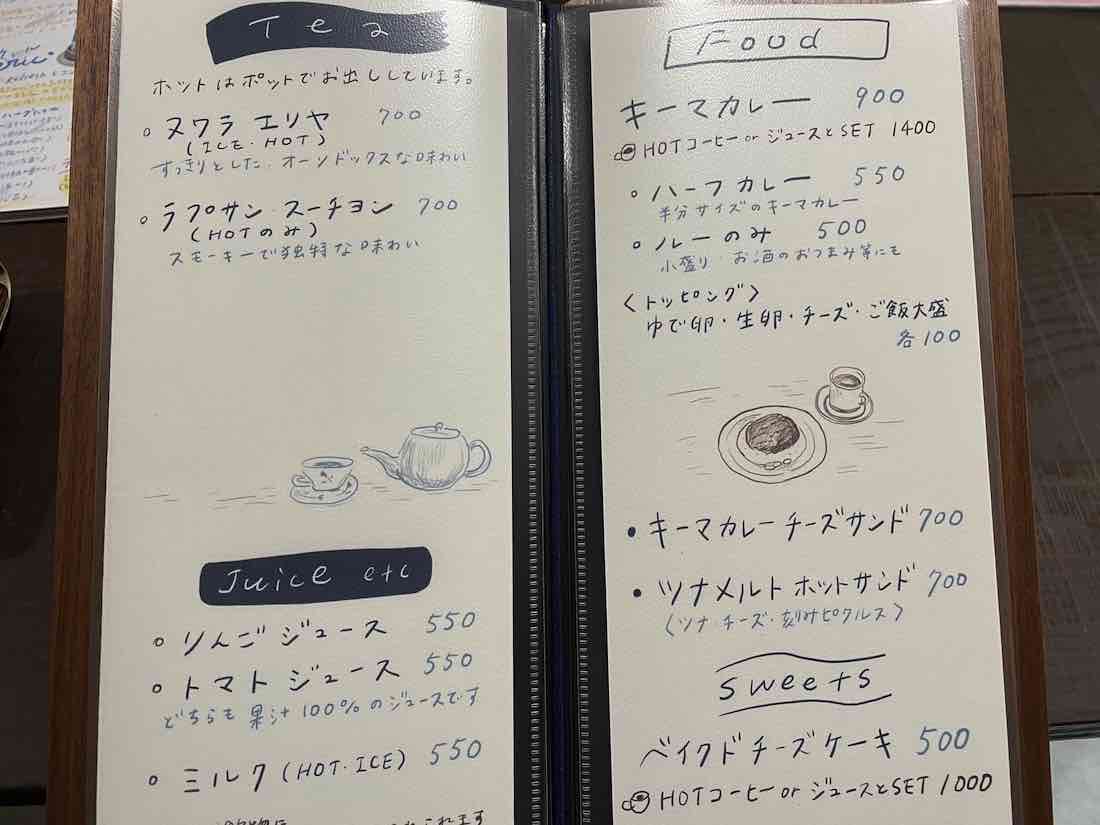 Tea
ホットはポットでお出ししています。
ヌワラ エリヤ 700
(ICE・HOT)
すっきりとした、オーソドックスな味わい
ラプサン スーチョン 700
(HOTのみ)
スモーキーで独特な味わい
Juice etc
りんごジュース 550
トマトジュース 550
どちらも果汁100%のジュースです
ミルク (HOT・ICE) 550
Food
キーマカレー 900
HOTコーヒー or ジュースとSET 1400
ハーフカレー 550
半分サイズのキーマカレー
ルーのみ 500
小盛り お酒のおつまみ等にも
〈トッピング〉
ゆで卵・生卵・チーズ・ご飯大盛
各100
キーマカレーチーズサンド 700
ツナメルトホットサンド 700
〈ツナ・チーズ・刻みピクルス〉
sweets
ベイクドチーズケーキ 500
HOTコーヒー or ジュースとSET 1000